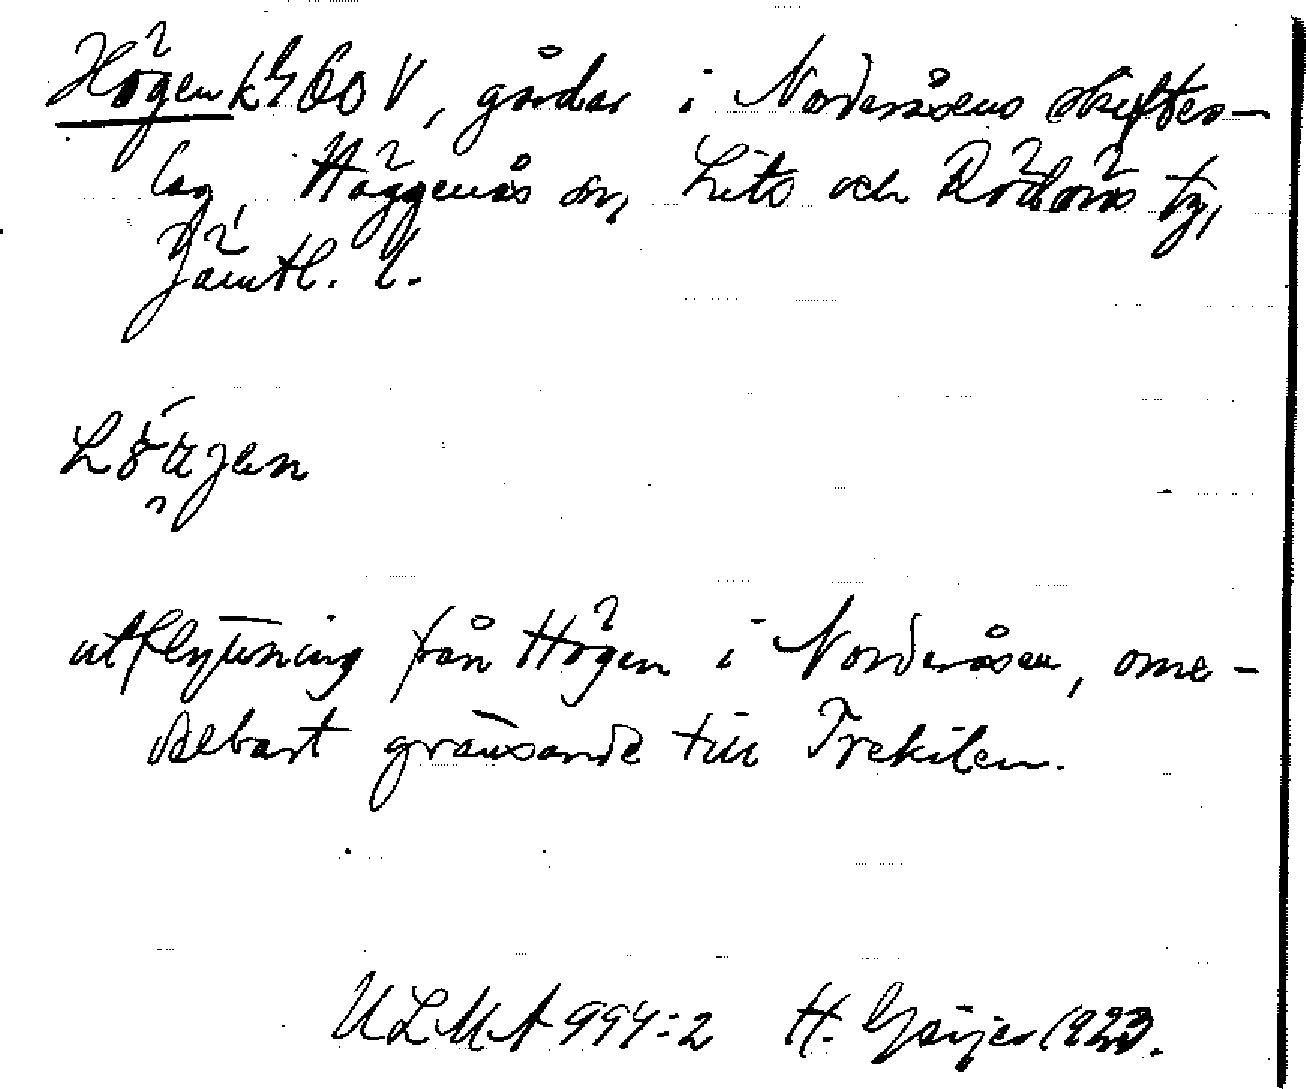 Högen k460 V, gårdar i Norderåsens skifles-
lag, Häggenås sn, Lits och Rödöns tg,
Jämtl. l.
utflyttning från Högen i Norderåsen, ome-
delbart gränsande till Trekilen.
ULMA 994:2 H. Geijer 1923.